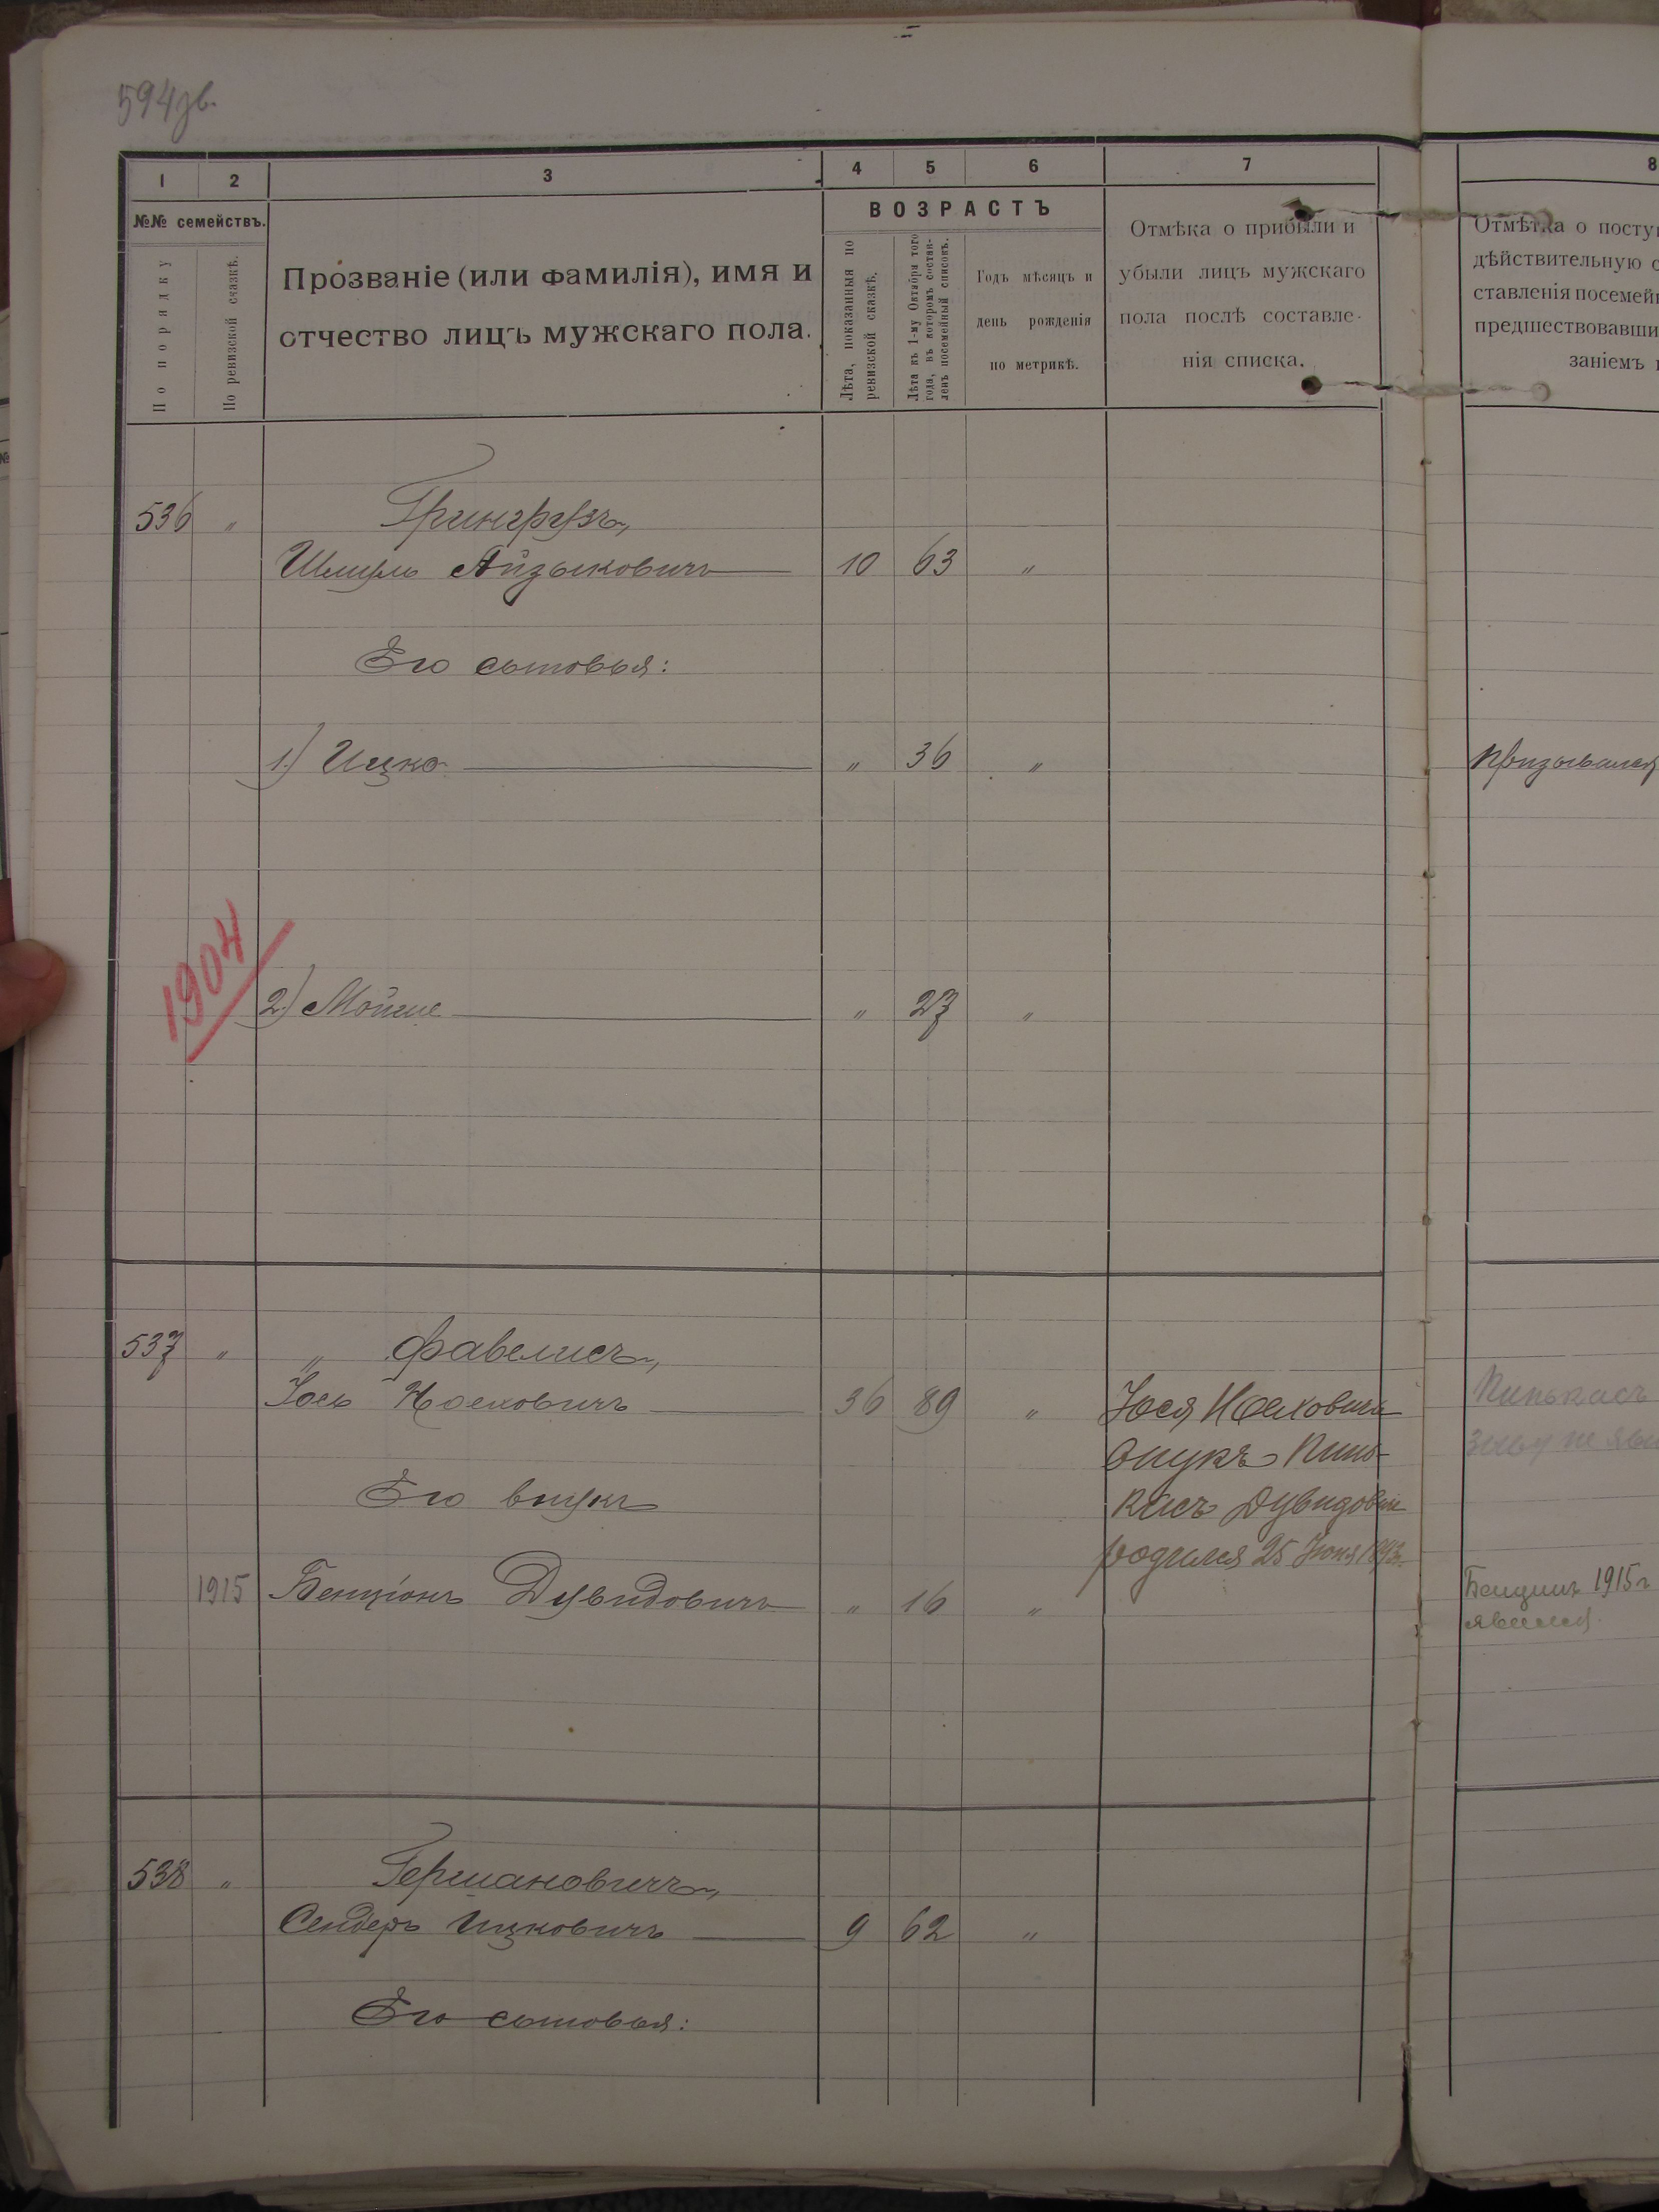 594зв.
1 2 3 4 5 6 7 8
№№ семействъ.
По порядку
По ревизской сказкѣ.
Прозваніе (или фамилія), имя и
отчество лицъ мужскаго пола.
ВОЗРАСТЪ
Лѣта, показанныя по
ревизской сказкѣ.
Лѣта къ 1-му Октября того
года, въ которомъ состав-
ленъ посемейный списокъ.
Годъ мѣсяцъ и
день рожденія
по метрикѣ.
Отмѣка о прибыли и
убыли лицъ мужскаго
пола послѣ составле-
нія списка.
Отмѣтка о посту
дѣйствительную с
ставленія посемей
предшествовавши
заніемъ
536 " Грингрузъ,
Шмуль Айзыковичъ 10 63 "
Его сыновья:
1.) Ицко " 36 "
Призывался
1904
2.) Мойше " 27 "
537 " " Фавелисъ,
Іось Носковичъ 36 89 "
Его внукъ
1915 Бенціонъ Дувидовичъ " 16 "
Іося Носковича
внукъ Пинь-
касъ Дувидович
родился 25 Іюня 1893.
Пинькасъ
зыву не яви
Бенціонъ 1915 г
явился.
538 " Германовичъ,
Сендеръ Ицковичъ 9 62 "
Его сыновья: